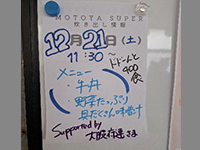 MOTOYA SUPER
炊き出し情報
12月21日(土)
11:30〜
ドドーんと
400食
メニュー
・牛丼
・野菜たっぷり
具だくさん味噌汁
Supported by
大阪府連さま